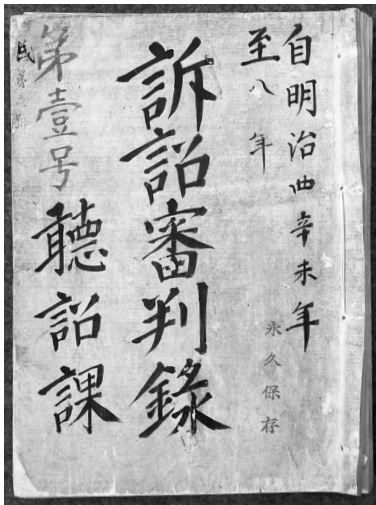 自明治四辛未年
至八年
永久保存
訴訟審判録
第壹号
聽訟課
民